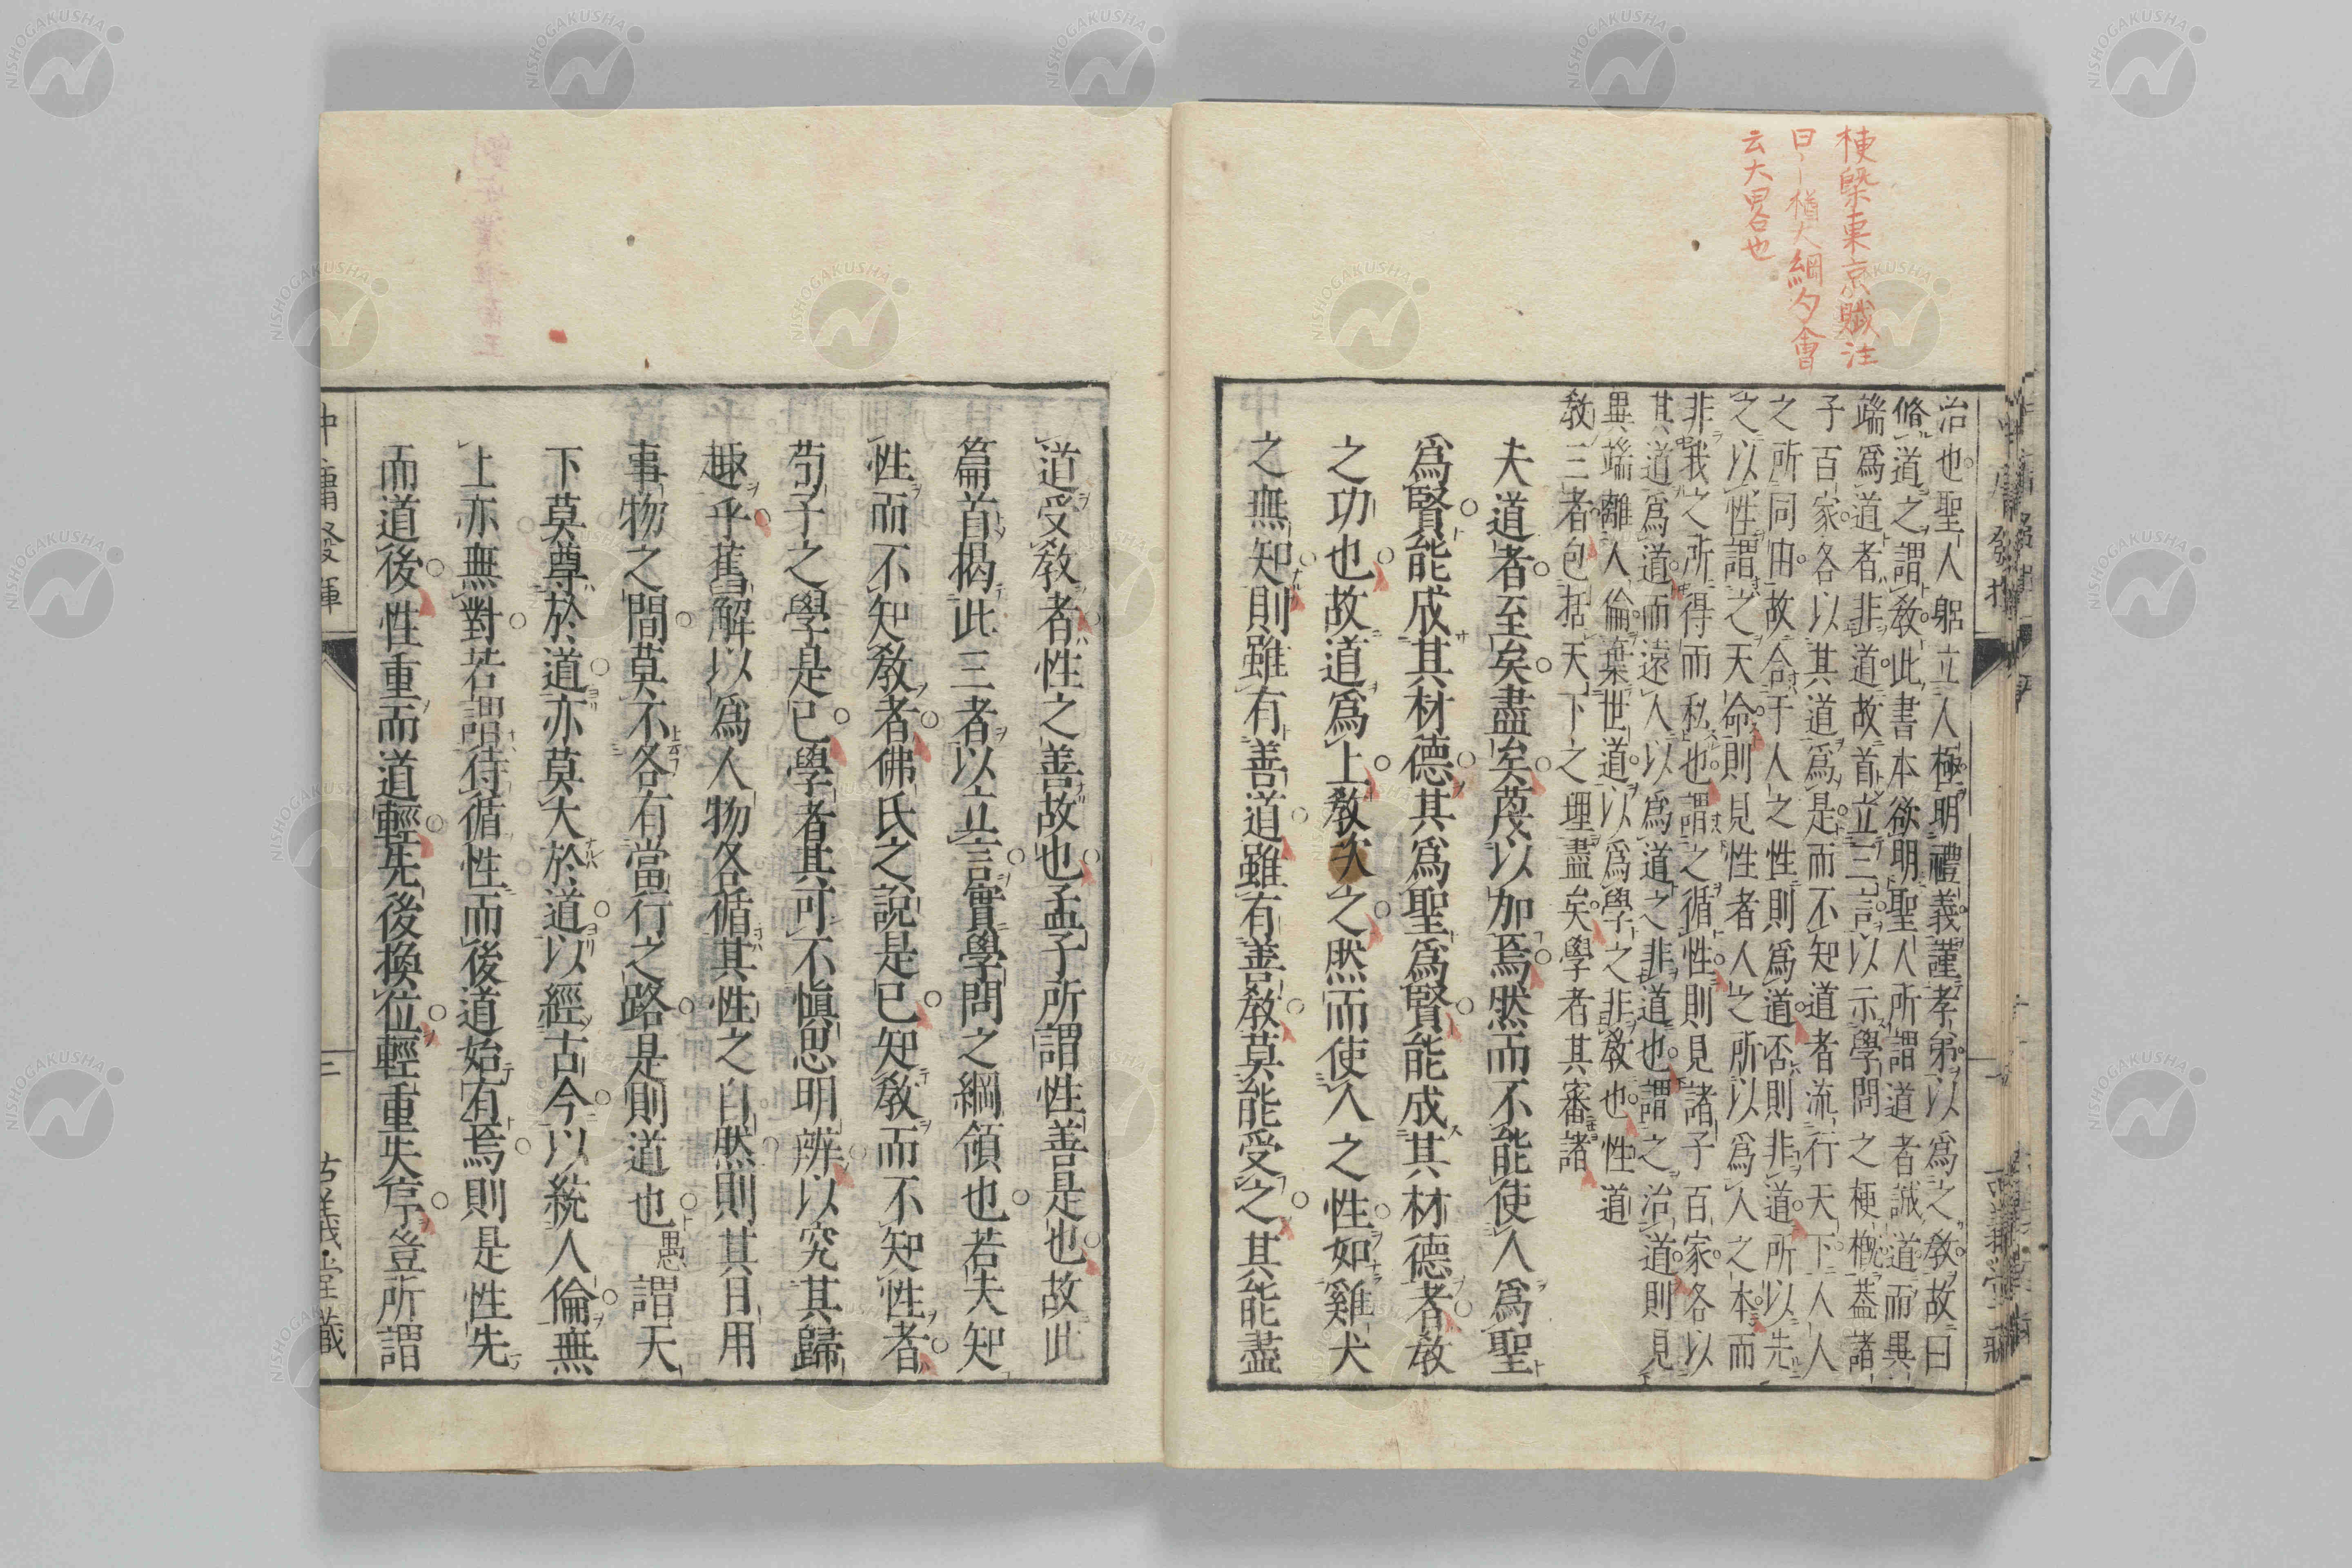 梗槩東京賦注
曰〻猶大綱夕會
云大畧也
治也聖人躬立人極明禮義謹孝弟以爲之教故曰
脩道之謂教此書本欲明聖人所謂道者誠道而異
端爲道者非道故首立三言以示學問之梗槩蓋諸
子百家各以其道爲是而不知道者流行天下人人
之所同由故合于人之性則爲道否則非道所以先
之以性謂之天命則見性者人之所以爲人之本而
非我之所得而私也謂之循性則見諸子百家各以
其道爲道而遠人以爲道之非道也謂之治道則見
異端離人倫棄世道以爲學之非教也性道
教三者包括天下之理盡矣學者其審諸
夫道者至矣盡矣蔑以加焉然而不能使人爲聖
爲賢能成其材德其爲聖爲賢能成其材德者教
之功也故道爲上教次之然而使人之性如雞犬
之無知則雖有善道雖有善教莫能受之其能盡
道受教者性之善故也孟子所謂性善是也故此
篇首揭此三者以立言實學問之綱領也若夫知
性而不知教者佛氏之説是已知教而不知性者
荀子之學是已學者其可不愼思明辨以究其歸
趣乎舊解以爲人物各循其性之自然則其日用
事物之間莫不各有當行之路是則道也愚謂天
下莫尊於道亦莫大於道以經古今以統人倫無
上亦無對若謂待循性而後道始有焉則是性先
而道後性重而道輕先後換位輕重失序豈所謂
中庸發揮
三
古義堂藏